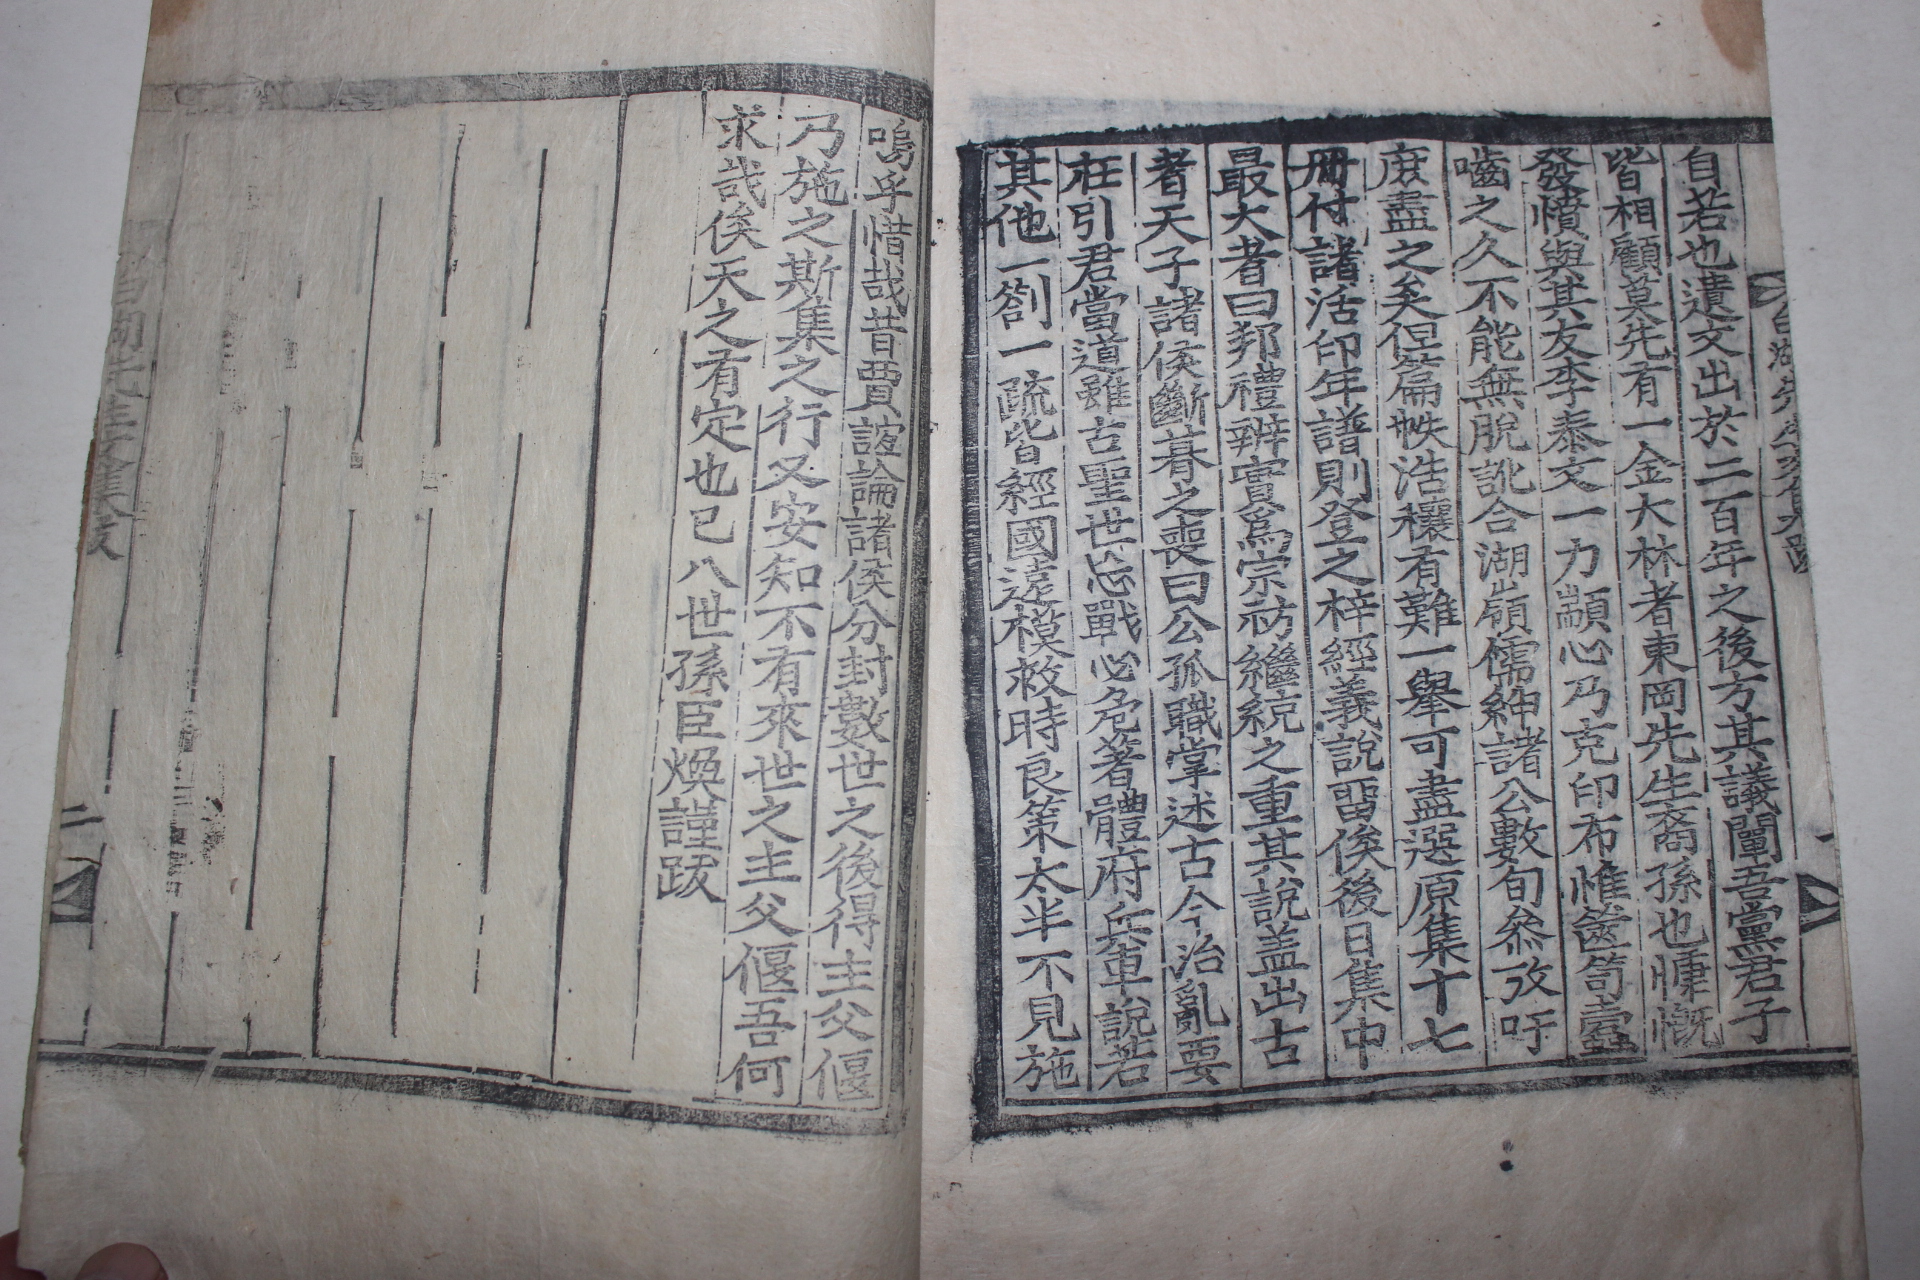 自若也遺文出於二百年之後方其議闡吾黨君子
皆相顧莫先有一金大林者東岡先生裔孫也慷慨
發憤與其友李泰文一力顓心乃克印布惟篋笥蠹
嚙之久不能無脫訛合湖嶺儒紳諸公數旬參攷吁
庶盡之矣但篇帙浩穰有難一擧可盡選原集十七
冊付諸活印年譜則登之梓經義說留俟後日集中
最大者曰邦禮辨實爲宗祊繼統之重其說盖出古
者天子諸侯斷朞之喪曰公孤職掌述古今治亂要
在引君當道雖古聖世忘戰必危著體府兵車說若
其他一劄一疏皆經國遠模救時良策太半不見施
嗚乎惜哉昔賈誼論諸侯分封數世之後得主父偃
乃施之斯集之行又安知不有來世之主父偃吾何
求哉俟天之有定也已八世孫臣煥謹跋
先生文集
二